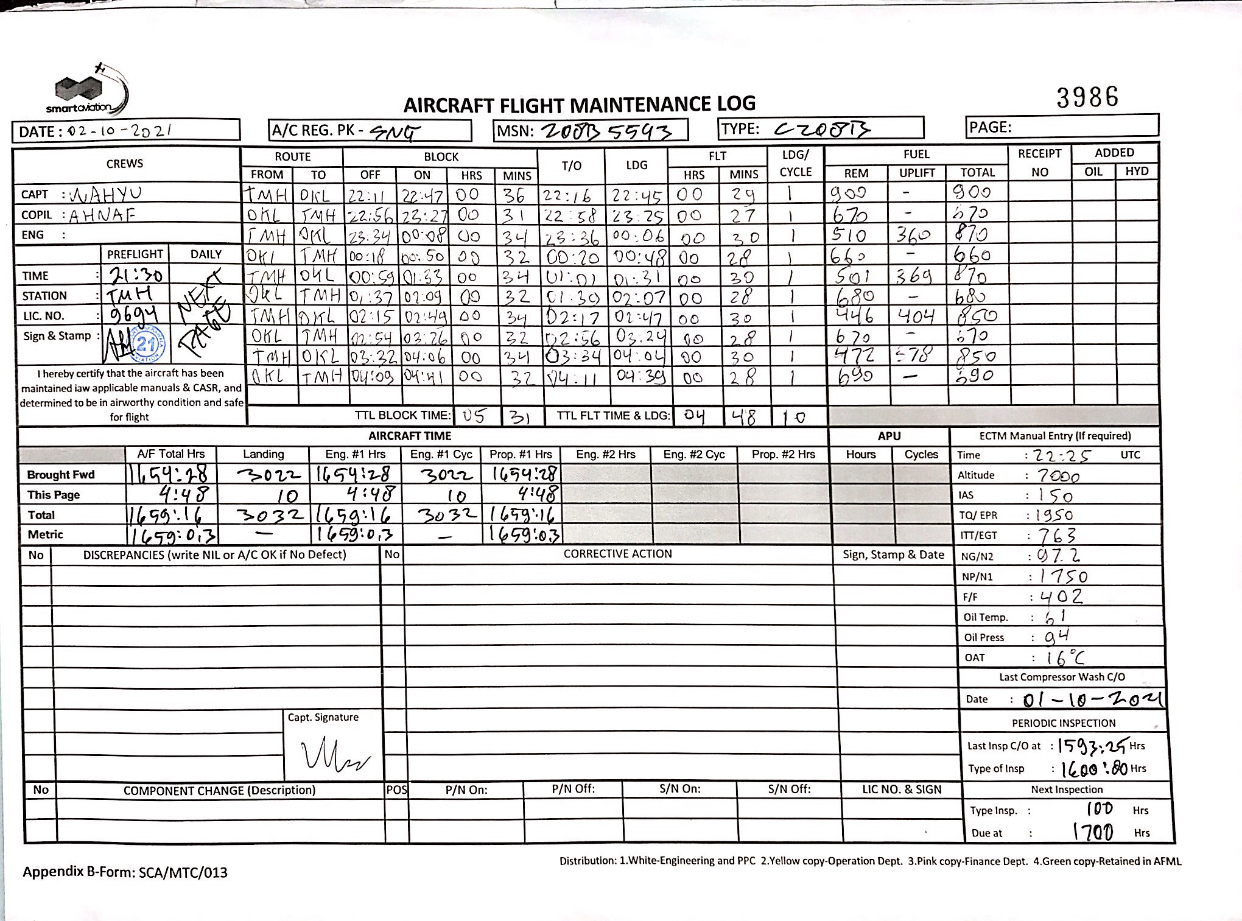 smartaviation
AIRCRAFT FLIGHT MAINTENANCE LOG
3986
DATE : 02-10-2021 A/C REG. PK - SNG MSN: 208B 5593 TYPE: C208B PAGE:
CREWS ROUTE BLOCK T/O LDG FLT LDG/ CYCLE FUEL RECEIPT NO ADDED
FROM TO OFF ON HRS MINS HRS MINS REM UPLIFT TOTAL OIL HYD
CAPT : WAHYU TMH OKL 22:11 22:47 00 36 22:16 22:45 00 29 1 900 - 900
COPIL : AHNAF OKL TMH 22:56 23:27 00 31 22:58 23:25 00 27 1 670 - 670
ENG : TMH OKL 23:34 00:08 00 34 23:36 00:06 00 30 1 510 360 870
PREFLIGHT DAILY OKL TMH 00:18 00:50 00 32 00:20 00:48 00 28 1 660 - 660
TIME : 21:30 NEXT PAGE TMH OKL 00:59 01:33 00 34 01:01 01:31 00 30 1 501 369 870
STATION : TMH OKL TMH 01:37 02:09 00 32 01:39 02:07 00 28 1 680 - 680
LIC. NO. : 9694 TMH OKL 02:15 02:49 00 34 02:17 02:47 00 30 1 446 404 850
Sign & Stamp : 21 OKL TMH 02:54 03:26 00 32 02:56 03:24 00 28 1 670 - 670
TMH OKL 03:32 04:06 00 34 03:34 04:04 00 30 1 472 378 850
I hereby certify that the aircraft has been OKL TMH 04:09 04:41 00 32 04:11 04:39 00 28 1 690 - 690
maintained iaw applicable manuals & CASR, and
determined to be in airworthy condition and safe
for flight
TTL BLOCK TIME: 05 31 TTL FLT TIME & LDG: 04 48 10
AIRCRAFT TIME APU ECTM Manual Entry (If required)
A/F Total Hrs Landing Eng. #1 Hrs Eng. #1 Cyc Prop. #1 Hrs Eng. #2 Hrs Eng. #2 Cyc Prop. #2 Hrs Hours Cycles Time : 22:25 UTC
Brought Fwd 1654:28 3022 1654:28 3022 1654:28 Altitude : 7000
This Page 4:48 10 4:48 10 4:48 IAS : 150
Total 1659:16 3032 1659:16 3032 1659:16 TQ/ EPR : 1950
Metric 1659:0,3 — 1659:0,3 — 1659:03 ITT/EGT : 763
No DISCREPANCIES (write NIL or A/C OK if No Defect) No CORRECTIVE ACTION Sign, Stamp & Date NG/N2 : 97.2
NP/N1 : 1750
F/F : 402
Oil Temp. : 61
Oil Press : 94
OAT : 16°C
Last Compressor Wash C/O
Date : 01-10-2021
Capt. Signature
PERIODIC INSPECTION
Last Insp C/O at : 1593:25 Hrs
Type of Insp : Hrs
No COMPONENT CHANGE (Description) POS P/N On: P/N Off: S/N On: S/N Off: LIC NO. & SIGN Next Inspection
Type Insp. : 100 Hrs
Due at : 1700 Hrs
Distribution: 1.White-Engineering and PPC 2.Yellow copy-Operation Dept. 3.Pink copy-Finance Dept. 4.Green copy-Retained in AFML
Appendix B-Form: SCA/MTC/013